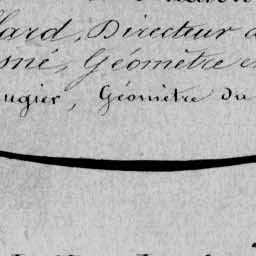 lard, Directeur
sné, Géomètre
ugier, Géomètre du